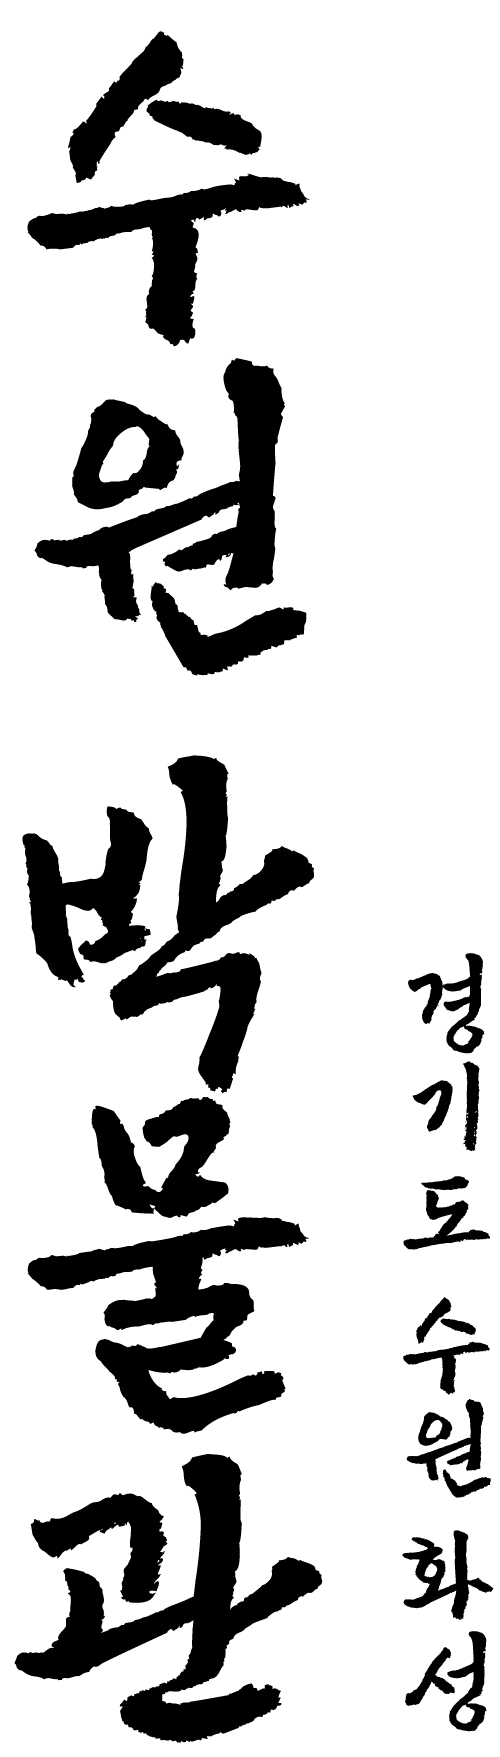 수원 박물관
경기도 수원 화성